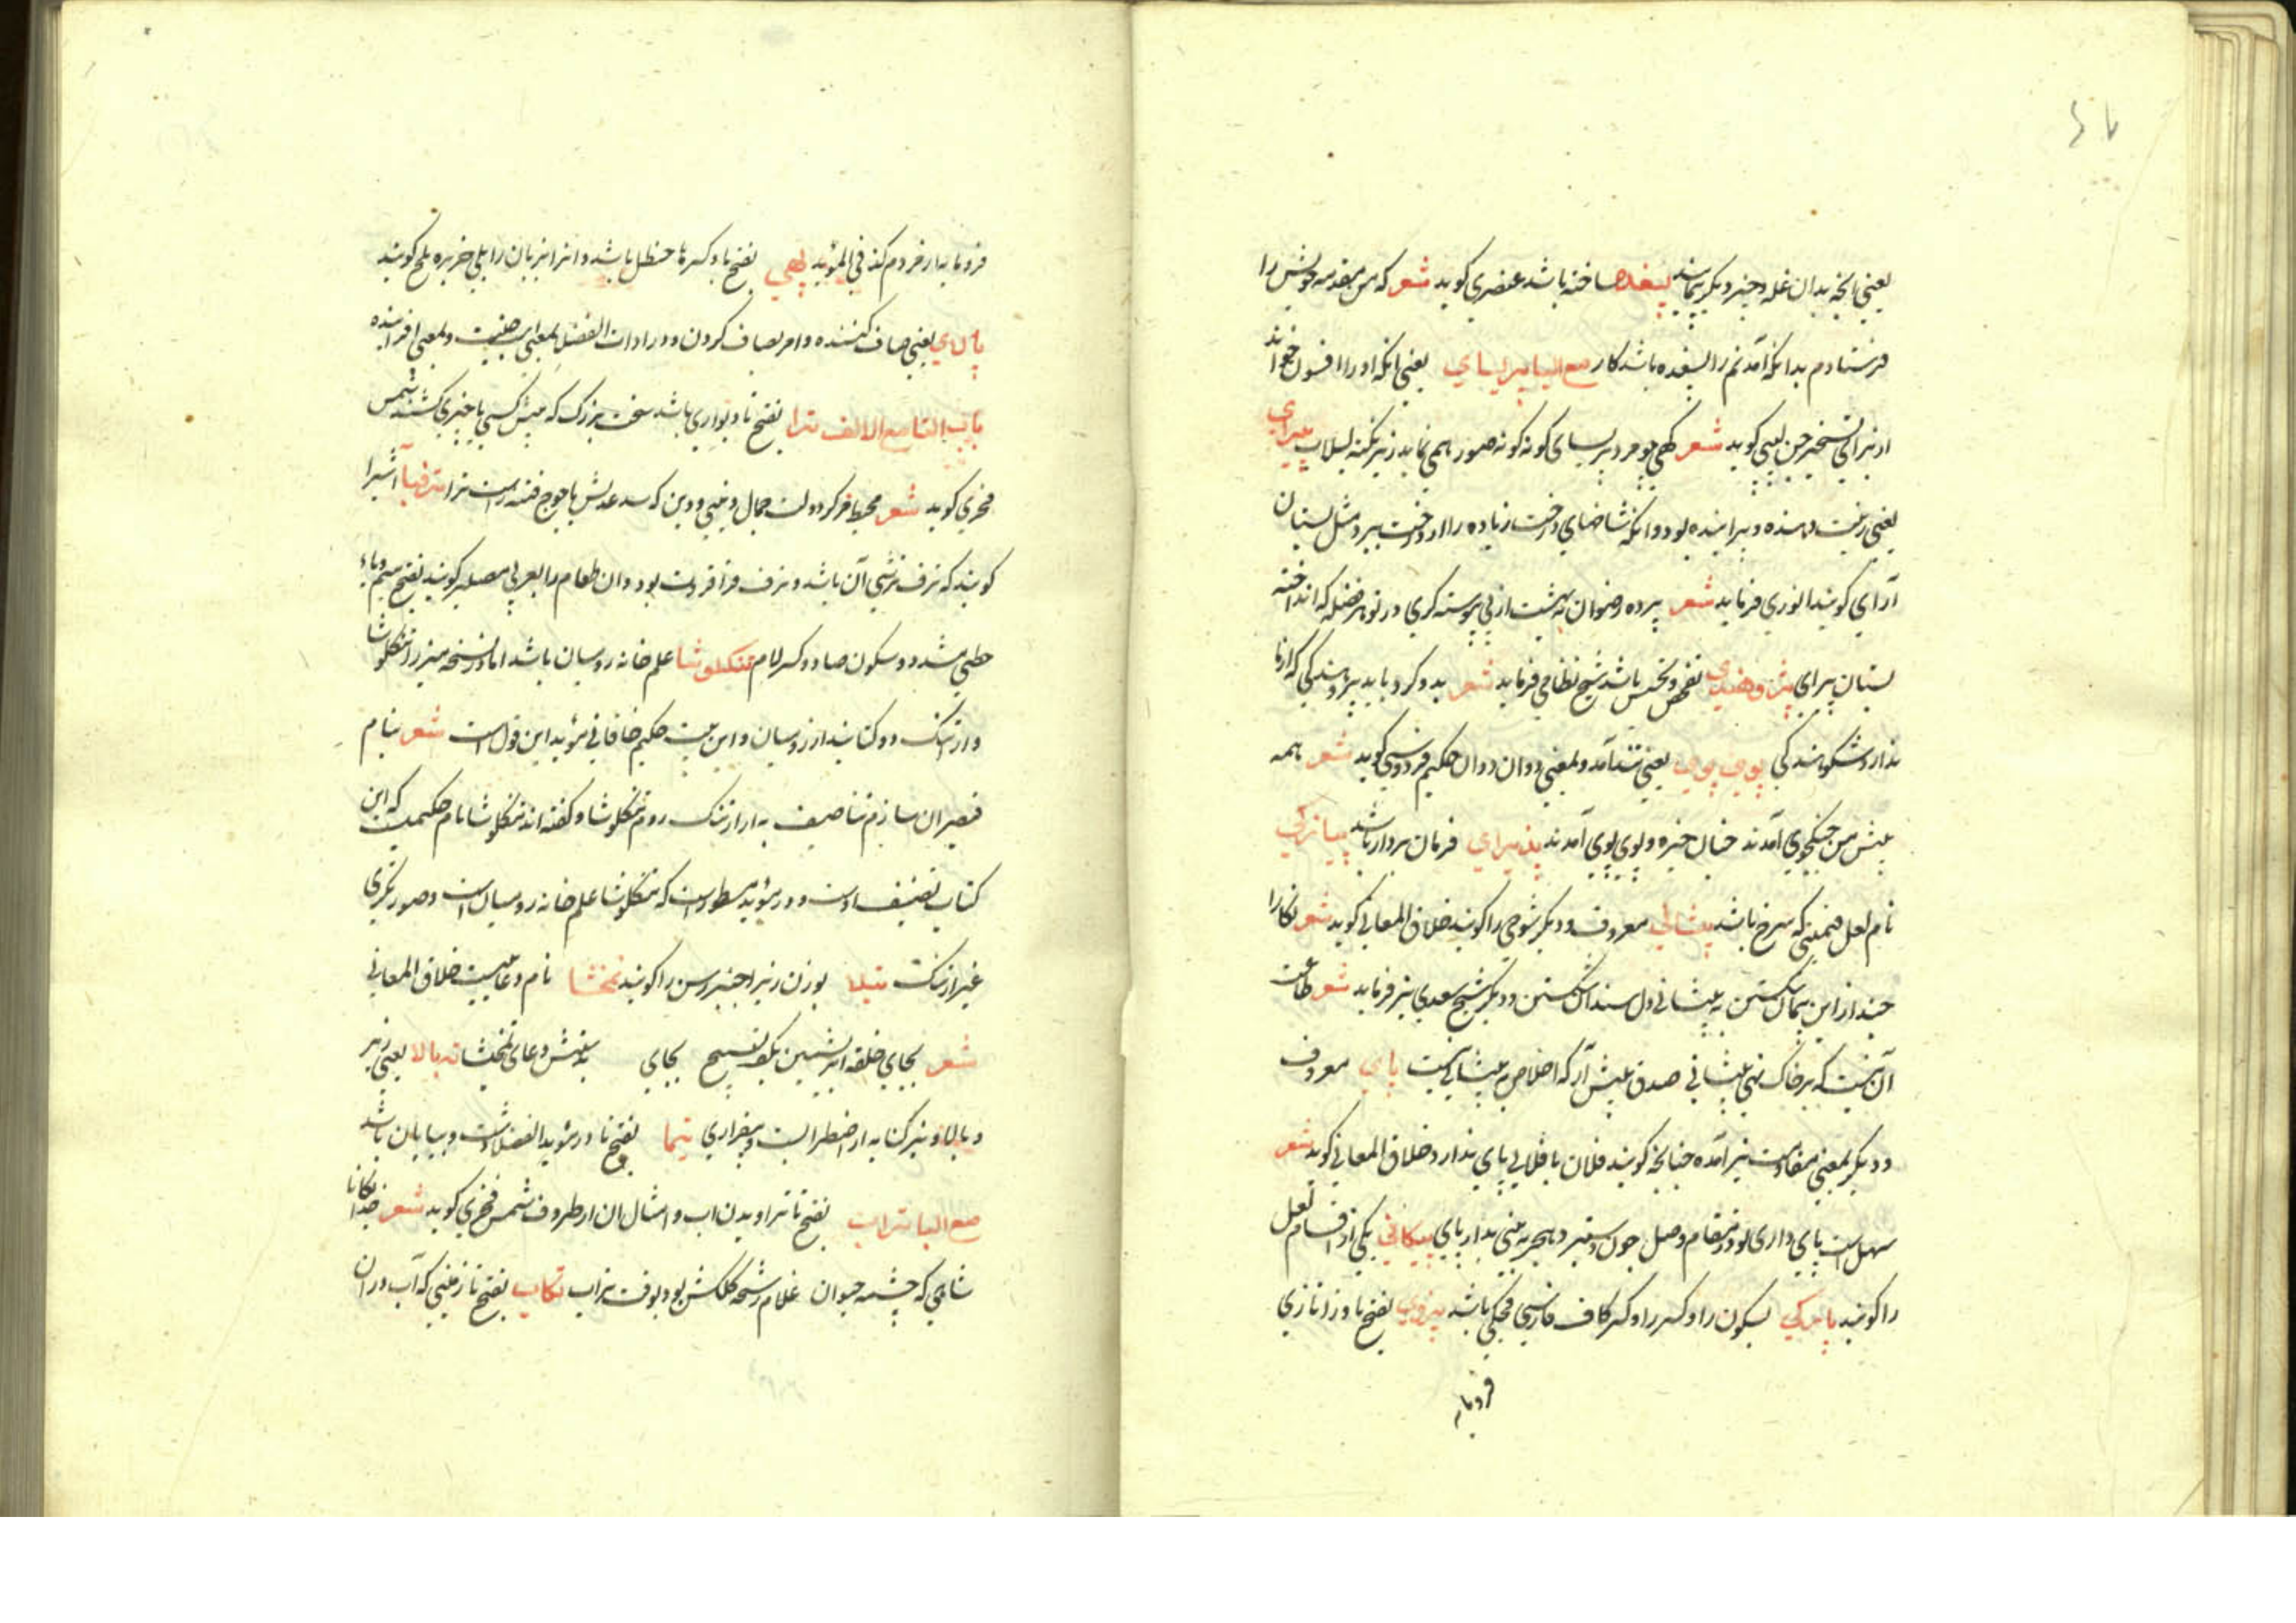 یعنی آنچه بدان غله و چیز دیگر پیمایند پسغده ساخته باشد عنصری کوید شعر که من مقدمه خویش را
فرستادم بدانکه آمدنم را پسغده باشد کار مع الیا پریسای یعنی آنکه او را افسون خواند
از برای تسخیر جن لبیبی کوید شعر کهی چو مرد پریسای کونه کونه صور همی نماید زیر نکینه لبلاب پیرای
یعنی زینت دهنده و پیراینده بود و آنکه شاخهای درخت زیاده را از درخت ببرد مثل بستان
آرای کویند انوری فرماید شعر پرده رضوان بهشت از پی پیوسته کری در تو هر فضله که انداخته
بستان پیرای پژوهندی تفحص و تجسس باشد شیخ نظامی فرماید شعر بدو کرد باید پژوهندکی که از ما
ندارد شکوهندکی پوی پوی یعنی تند آمد و بمعنی دوان دوان حکیم فردوسی کوید شعر همه
پیش من جنکجوی آمدند چنان خیره و پوی پوی آمدند پذیرای فرمان بردار باشد پیازکی
نام لعل قیمتی که سرخ باشد پیشانی معروف و دیکر شوخی را کویند خلاق المعانی کوید شعر نکارا
چند ازین پیمان شکستن به پیشانی دل سندان شکستن و دیکر شیخ سعدی نیز فرماید شعر طاعت
آن نیست که بر خاک نهی پیشانی صدق پیش آر که اخلاص به پیشانی نیست پای معروف
و دیکر بمعنی مقاومت نیز آمده چنانچه کویند فلان با فلانی پای ندارد خلاق المعانی کوید شعر
سهل است پای داری تو در مقام وصل چون دستبرد هجر به بینی بدار پای پیکانی یکی از اقسام لعل
را کویند پارکی بسکون را و کسر را و کسر کاف فارسی باشد پزوی بفتح با و زا تازی
فرومایه
فرومایه از مردم کذا فی المؤید پهی بفتح با و کسر ها حنظل باشد و انرا بزبان را بلی خربزه تلخ کویند
پالای یعنی صاف کننده و امر بصاف کردن و در ادات الفضلا بمعنی است و بمعنی افزاینده
باب التا مع الالف ترا بفتح تا دیواری باشد سخت بزرک که پیش کسی یا چیزی کشند شمس
فخری کوید شعر محیط مرکز دولت جمال دنیی و دین که سد عدلش یاجوج فتنه راست ترا ترفبا آشبرا
کویند که ترف ترشی آن باشد و ترف قراقروت بود و ان طعام را بعربی مصلیر کویند بفتح میم و یاء
حطی مشدد و سکون صاد و کسر لام تنکلوشا علم خانه رومیان باشد اما در نسخه میرزا تنکلوشا
و ارتنک دو کتابند از رومیان و این بیت حکیم خاقانی مؤید این قول است شعر بنام
قیصران سازم تصانیف به از ارتنک روم و تنکلوشا و کفته اند تنکلوشا نام حکیمیست که این
کتاب تصنیف اوست و در مؤید مسطور است که تنکلوشا علم خانه رومیان است و صورتکری
غیر ارتنک تبلا بوزن زیبا چنبر رسن را کویند تمخشا نام دعاییست خلاق المعانی
شعر بجای حلقه ابریشمین بکف تسبیح بجای به نیتش دعای تمخشا ته بالا یعنی زیر
و بالا و نیز کنایه از اضطرابست و بیقراری تیما بفتح تا در مؤید الفضلا دشت و بیابان باشد
مع البا تراب بفتح تا تراویدن اب و امثال ان از ظروف شمس فخری کوید شعر خدایکانا
شاهی که چشمه حیوان غلام رشحه کلکش بود بوقت تراب تکاب بفتح تا زمینی که آب در ان